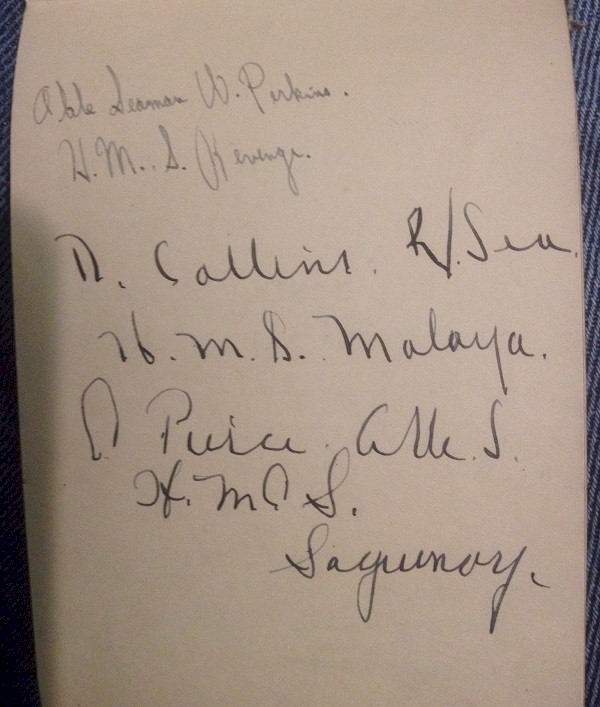 Able Seaman W. Perkins.
H.M.S. Revenge.
D. Collins. R/Sea.
H.M.S. Malaya.
P Peirce. Able. S.
H.M.C.S.
Saguenay.